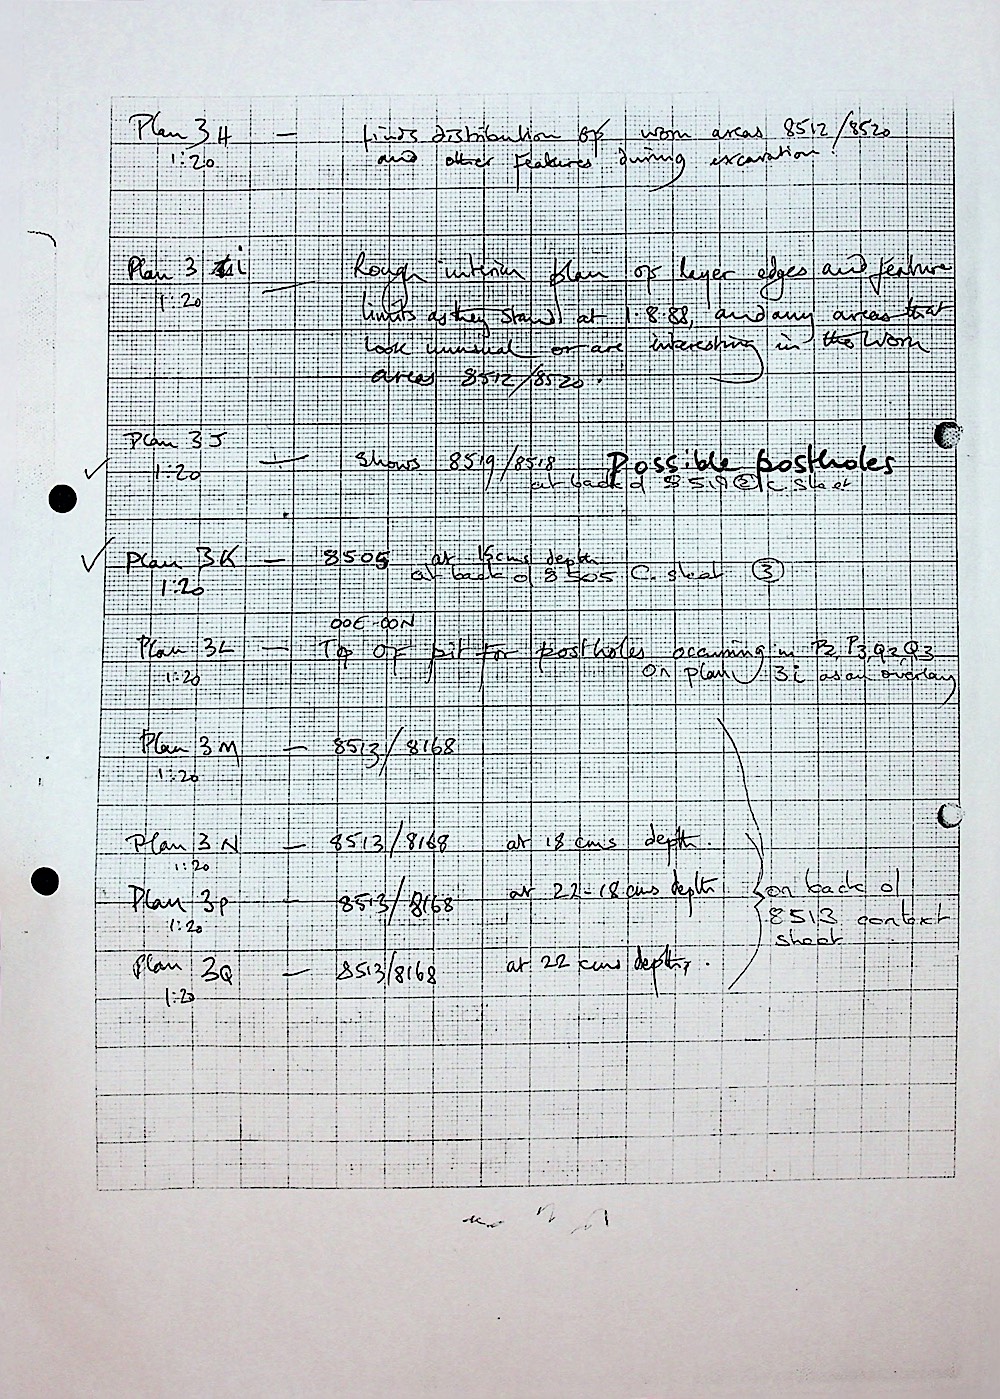 Plan 3H — finds distribution of worn areas 8512/8520
1:20 and other features during excavation.
Plan 3 i Rough interim plan of layer edges and feature
1:20 — limits as they stand at 1.8.88, and any areas that
look unusual or are interesting in the worn
areas 8512/8520.
Plan 3J
1:20 — shows 8519/8518 Possible postholes
at back of 8519 ② c. sheet
Plan 3K — 8505 at 15cms depth
1:20 at back of 8505 C. sheet ③
00E-00N
Plan 3L — Top of pit for postholes occurring in P2, P3, Q2, Q3
1:20 on plan 3i as an overlay
Plan 3M — 8513/8168
1:20
Plan 3N — 8513/8168 at 18 cms depth.
1:20
Plan 3P — 8513/8168 at 22-18 cms depth
1:20
on back of
8513 context
sheet
Plan 3Q — 8513/8168 at 22 cms depth.
1:20